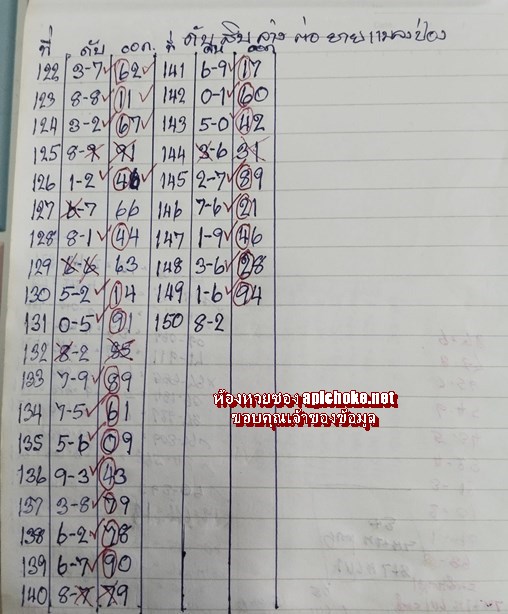 ดับ สิบ ล่าง ต่อ ยายแมลงป่อง
ที่ ดับ ออก ที่ ดับ ออก
122 3-7 62 141 6-9 17
123 8-8 11 142 0-1 60
124 3-2 67 143 5-0 42
125 8-9 91 144 3-6 31
126 1-2 46 145 2-7 89
127 6-7 66 146 7-6 21
128 8-1 44 147 1-9 46
129 6-6 63 148 3-6 28
130 5-2 14 149 1-6 94
131 0-5 91 150 8-2
132 8-2 35
133 7-9 89
134 7-5 61
135 5-6 09
136 9-3 43
137 3-8 79
138 6-2 78
139 6-7 90
140 8-7 29
ห้องหวยซอง apichoke.net
ขอบคุณเจ้าของข้อมูล